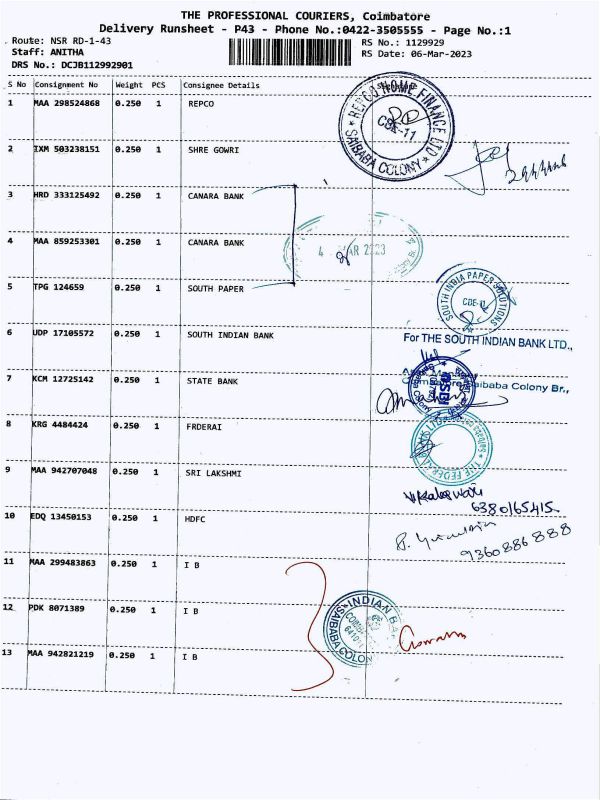 THE PROFESSIONAL COURIERS, Coimbatore
Delivery Runsheet - P43 - Phone No.:0422-3505555 - Page No.:1
Route: NSR RD-1-43
RS No.: 1129929
Staff: ANITHA
RS Date: 06-Mar-2023
DRS No.: DCJB112992901
S No Consignment No Weight PCS Consignee Details
1 MAA 298524868 0.250 1 REPCO
REPCO HOME FINANCE LTD
CBE-11
SAIBABA COLONY
2 IXM 503238151 0.250 1 SHRE GOWRI
3 HRD 333125492 0.250 1 CANARA BANK
4 MAR 2023
4 MAA 859253301 0.250 1 CANARA BANK
5 TPG 124659 0.250 1 SOUTH PAPER
SOUTH INDIA PAPER SOLUTIONS
6 UDP 17105572 0.250 1 SOUTH INDIAN BANK
For THE SOUTH INDIAN BANK LTD.,
7 KCM 12725142 0.250 1 STATE BANK
Saibaba Colony Br.,
8 KRG 4484424 0.250 1 FRDERAI
THE FEDERAL BANK LTD
9 MAA 942707048 0.250 1 SRI LAKSHMI
6380165415
10 EDQ 13450153 0.250 1 HDFC
9360886888
11 MAA 299483863 0.250 1 I B
12 PDK 8071389 0.250 1 I B
INDIAN
SAIBABA COLONY
13 MAA 942821219 0.250 1 I B